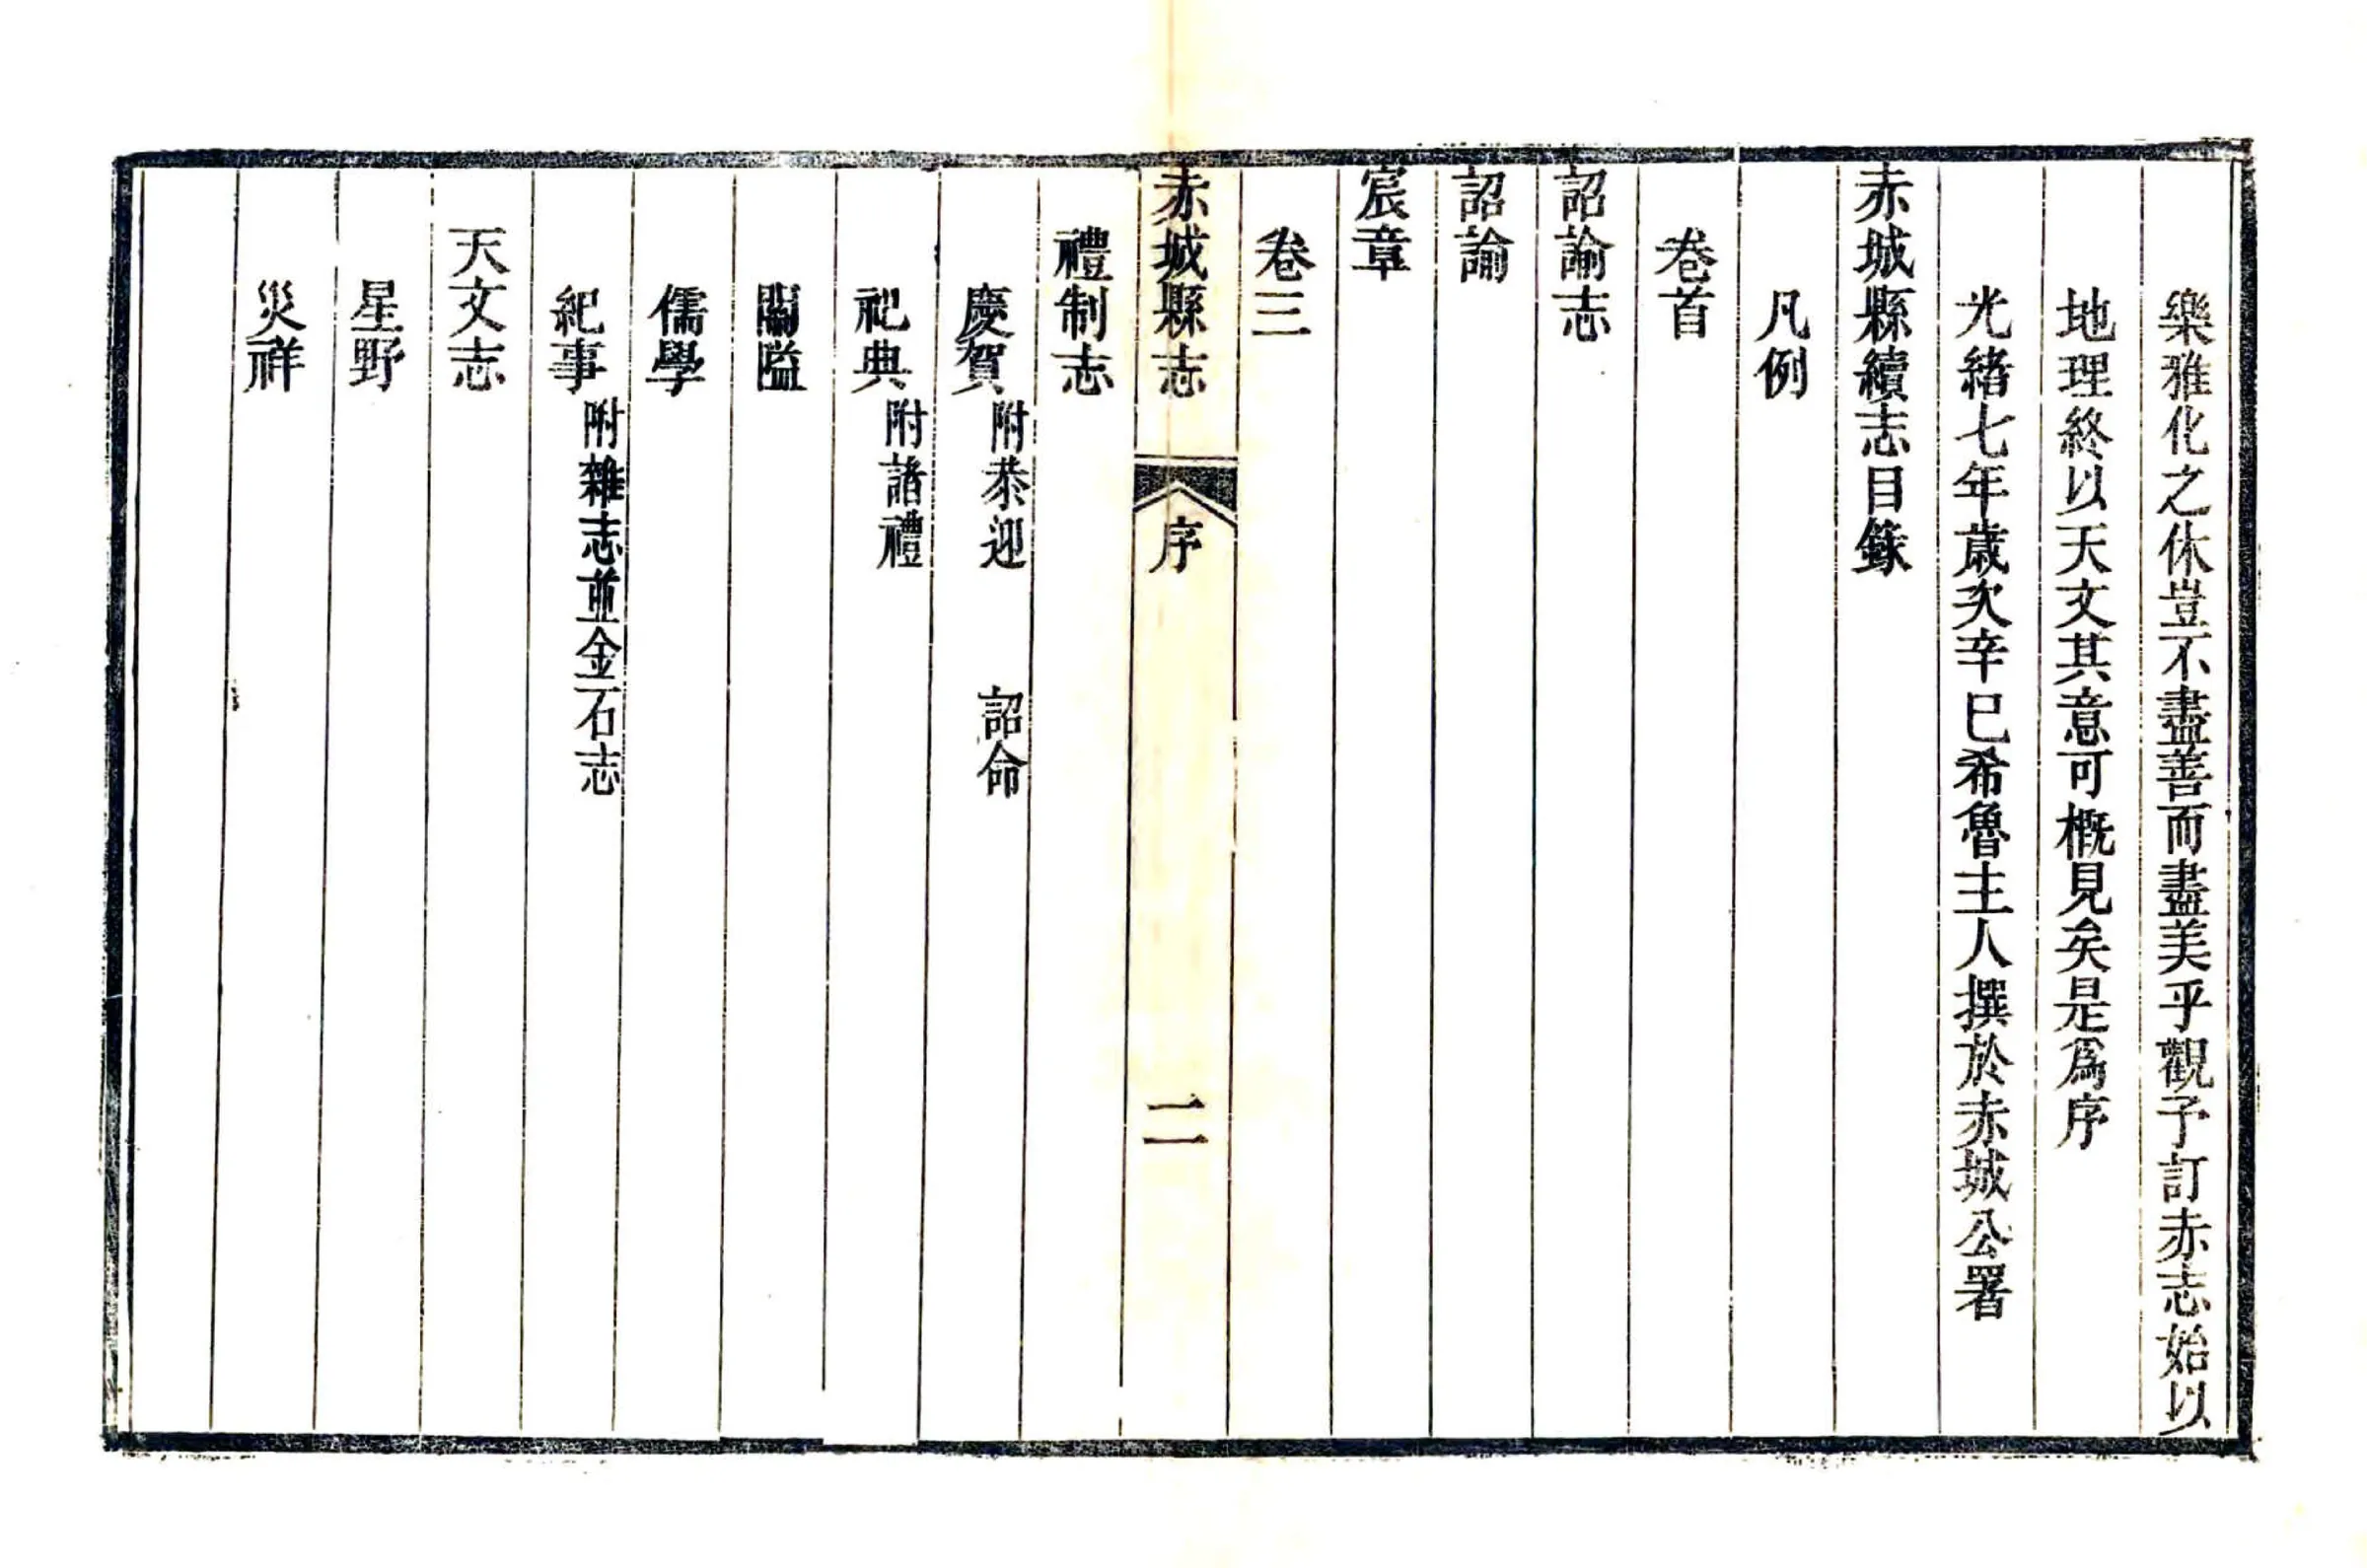 樂雅化之休豈不盡善而盡美乎觀予訂赤志始以
地理終以天文其意可概見矣是為序
光緒七年歲次辛巳希魯主人撰於赤城公署
赤城縣續志目錄
凡例
卷首
詔諭志
詔諭
宸章
卷三
赤城縣志 序 二
禮制志
慶賀 附恭迎 詔命
祀典 附諸禮
關隘
儒學
紀事 附雜志並金石志
天文志
星野
災祥